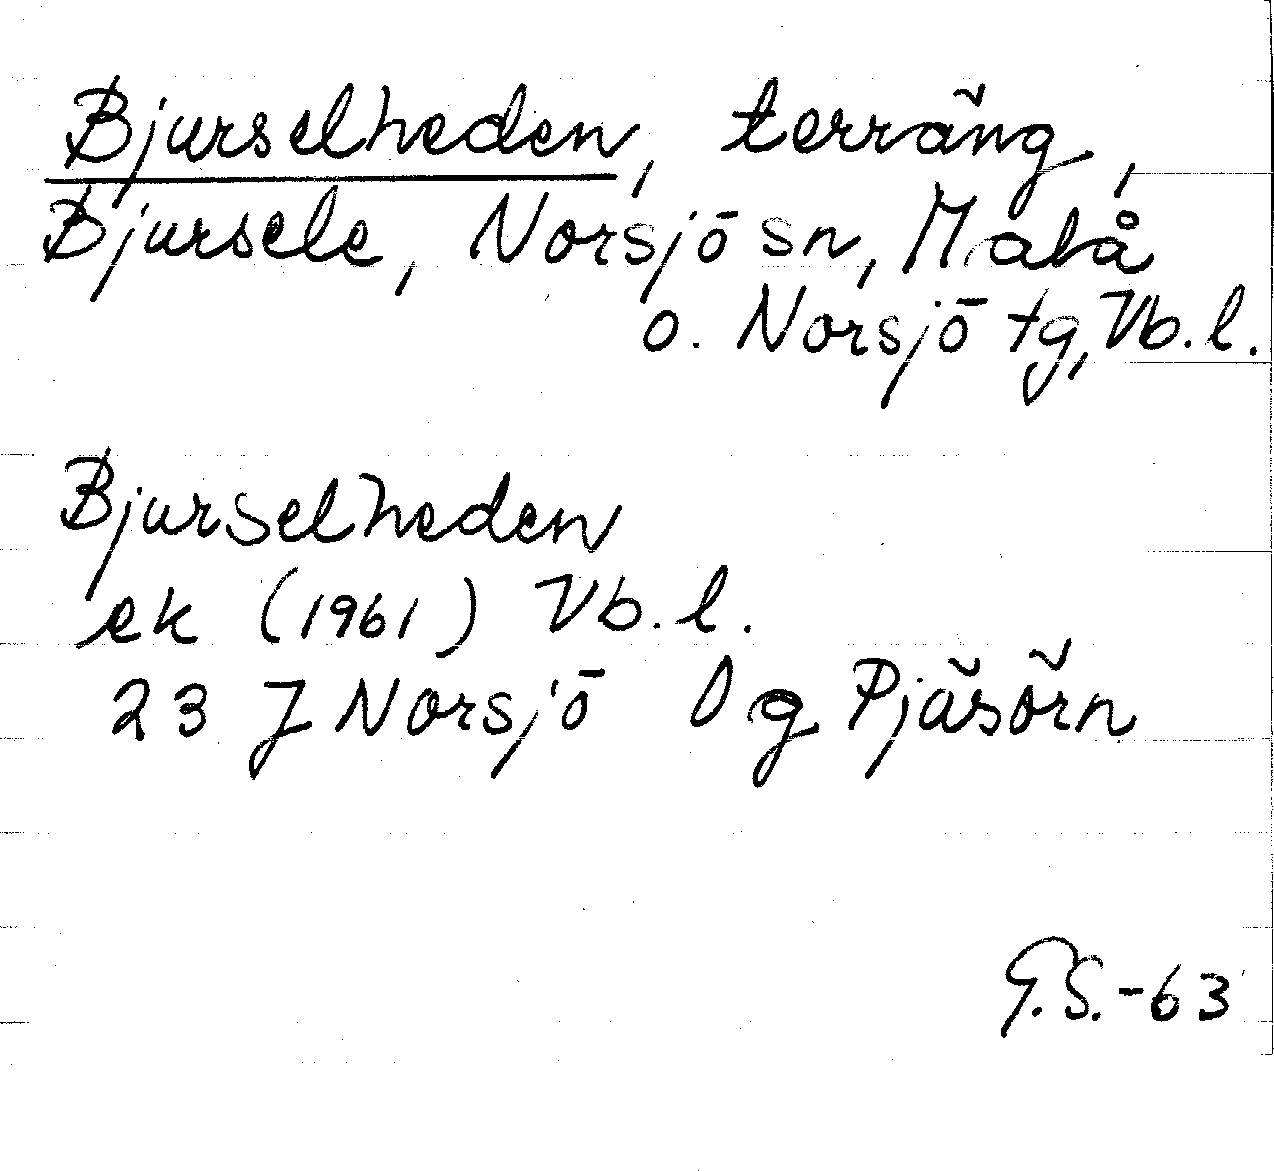 Bjurselheden, terräng,
Bjursele, Norsjö sn, Malå
o. Norsjö tg, Vb. l.
Bjurselheden
ek (1961) Vb. l.
23 J Norsjö 0 g Pjäsörn
G.S.-63